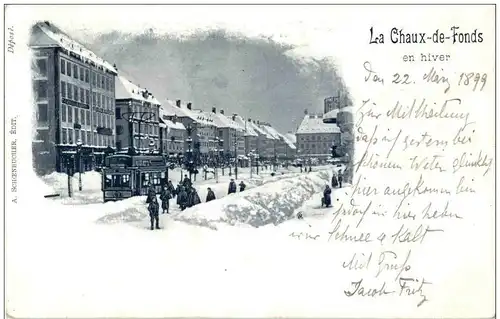 Déposé.
La Chaux-de-Fonds
en hiver
A. SCHÖNBUCHER, ÉDIT.
Den 22. März 1899
Zur Mittheilung
daß ich gestern bei
schönem Wetter glücklich
hier angekommen bin
hier
Schnee & Kalt
Mit Gruß
Jacob Fritz